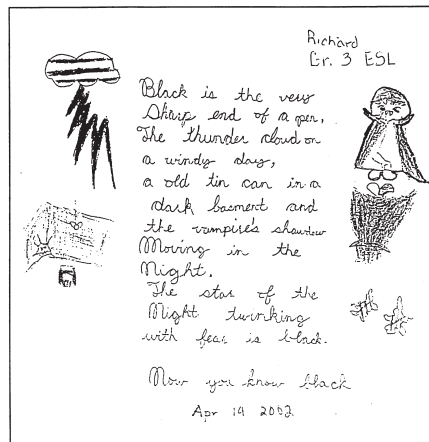 Richard
Gr. 3 ESL
Black is the very
Sharp end of a pen,
The thunder cloud on
a windy day,
a old tin can in a
dark basment and
the vampire's shawdow
Moving in the
Night.
The star of the
Night twinking
with fear is black.
Now you know black
Apr 19 2002